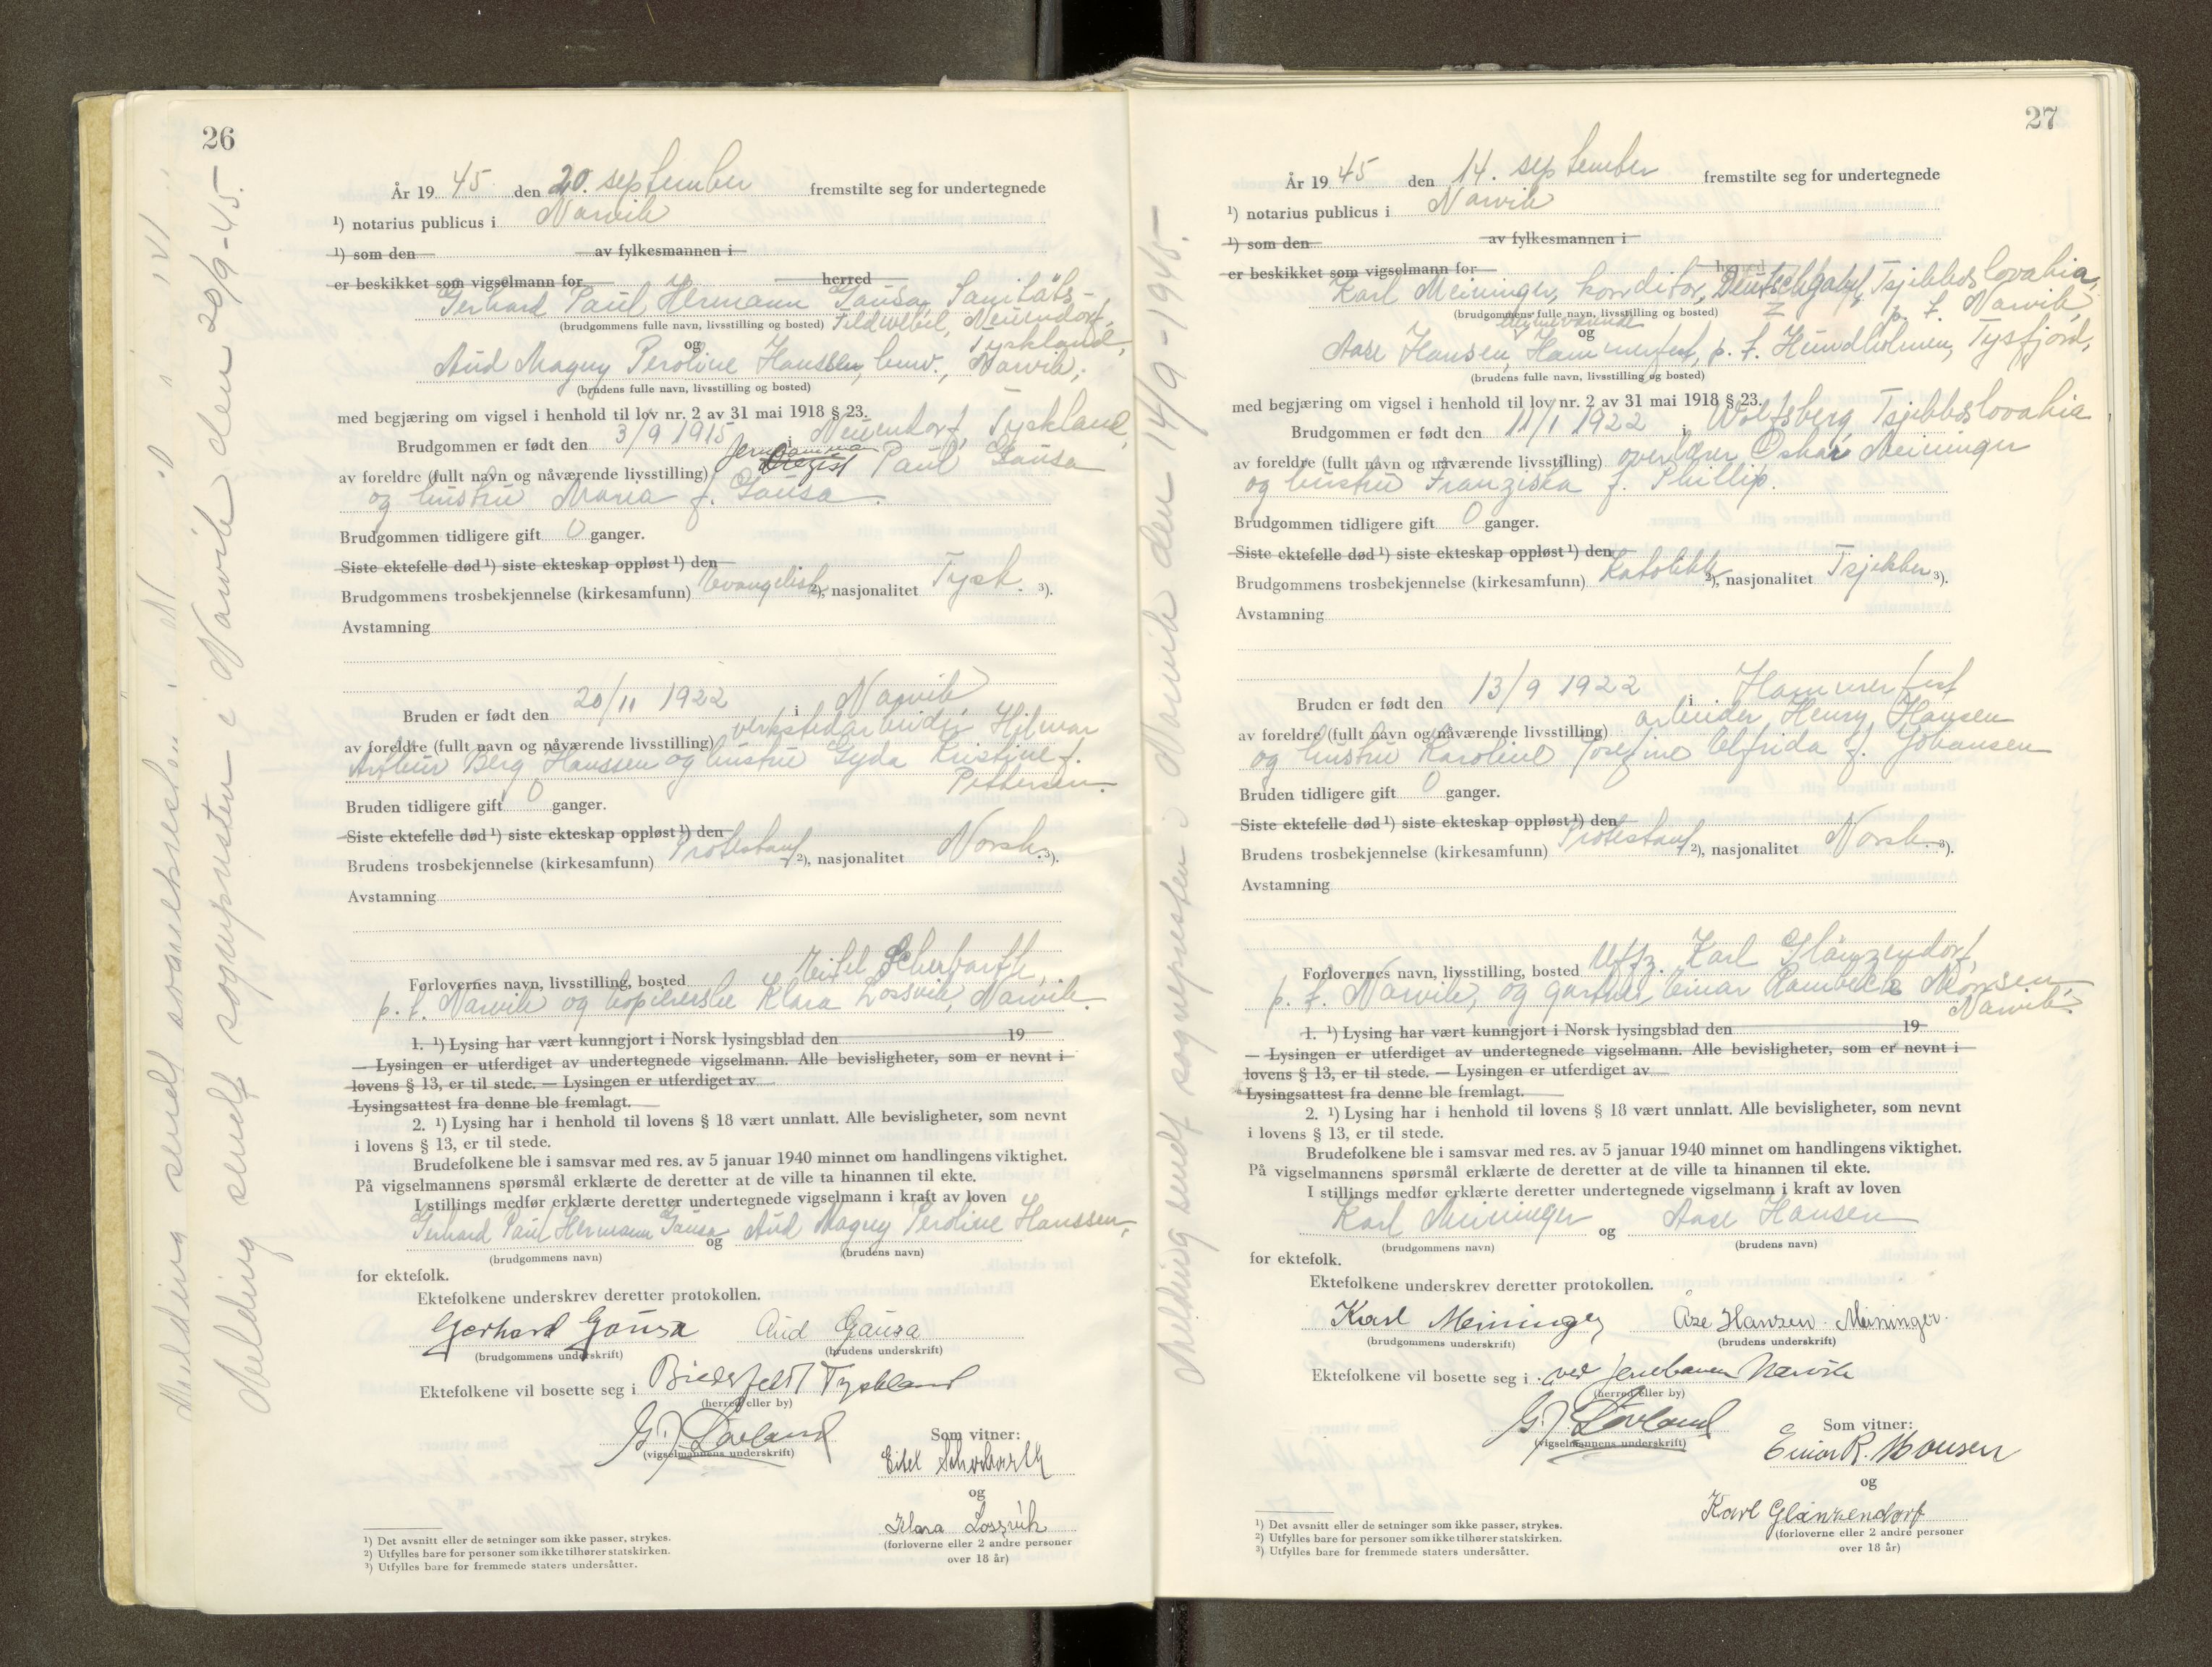 26
År 19 45 den 20. september fremstilte seg for undertegnede
¹) notarius publicus i Narvik
¹) som den av fylkesmannen i
er beskikket som vigselmann for herred
Gerhard Paul Hermann Gausa, Sanitäts-
(brudgommens fulle navn, livsstilling og bosted) Feldwebel, Neuendorf,
og Tyskland,
Aud Magny Peroline Hanssen, husv., Narvik,
(brudens fulle navn, livsstilling og bosted)
med begjæring om vigsel i henhold til lov nr. 2 av 31 mai 1918 § 23.
Brudgommen er født den 3/9 1915 i Neuendorf, Tyskland,
av foreldre (fullt navn og nåværende livsstilling) Paul Gausa
og hustru Maria f. Gausa.
Brudgommen tidligere gift 0 ganger.
Siste ektefelle død ¹) siste ekteskap oppløst ¹) den
Brudgommens trosbekjennelse (kirkesamfunn) Evangelisk ²), nasjonalitet Tysk. ³).
Avstamning
Bruden er født den 20/11 1922 i Narvik,
av foreldre (fullt navn og nåværende livsstilling) verkstedarbeider Hilmar
Arthur Berg Hanssen og hustru Gyda Kristine f.
Pettersen.
Bruden tidligere gift 0 ganger.
Siste ektefelle død ¹) siste ekteskap oppløst ¹) den
Brudens trosbekjennelse (kirkesamfunn) Protestant ²), nasjonalitet Norsk. ³).
Avstamning
Forlovernes navn, livsstilling, bosted Eitel Scherbarth,
p. t. Narvik og kokkerske Klara Lossvik, Narvik.
1. ¹) Lysing har vært kunngjort i Norsk lysingsblad den 19
— Lysingen er utferdiget av undertegnede vigselmann. Alle bevisligheter, som er nevnt i
lovens § 13, er til stede. — Lysingen er utferdiget av
Lysingsattest fra denne ble fremlagt.
2. ¹) Lysing har i henhold til lovens § 18 vært unnlatt. Alle bevisligheter, som nevnt
i lovens § 13, er til stede.
Brudefolkene ble i samsvar med res. av 5 januar 1940 minnet om handlingens viktighet.
På vigselmannens spørsmål erklærte de deretter at de ville ta hinannen til ekte.
I stillings medfør erklærte deretter undertegnede vigselmann i kraft av loven
Gerhard Paul Hermann Gausa og Aud Magny Peroline Hanssen,
(brudgommens navn) (brudens navn)
for ektefolk.
Ektefolkene underskrev deretter protokollen.
Gerhard Gausa Aud Gausa
(brudgommens underskrift) (brudens underskrift)
Ektefolkene vil bosette seg i Tyskland
(herred eller by)
G. J. Løvland
(vigselmannens underskrift)
Som vitner:
Eitel Scherbarth
og
Klara Lossvik
(forloverne eller 2 andre personer
over 18 år)
¹) Det avsnitt eller de setninger som ikke passer, strykes.
²) Utfylles bare for personer som ikke tilhører statskirken.
³) Utfylles bare for fremmede staters undersåtter.
Melding sendt
Melding sendt sognepresten i Narvik den 20/9-45.-
27
År 19 45 den 14. september fremstilte seg for undertegnede
¹) notarius publicus i Narvik
¹) som den av fylkesmannen i
er beskikket som vigselmann for herred
Karl Meininger, konditor, Deutschgabel, Tsjekkoslovakia,
(brudgommens fulle navn, livsstilling og bosted) p. t. Narvik,
og
Aase Hansen, Hammerfest, p. t. Hundholmen, Tysfjord,
(brudens fulle navn, livsstilling og bosted)
med begjæring om vigsel i henhold til lov nr. 2 av 31 mai 1918 § 23.
Brudgommen er født den 11/1 1922 i Wolfsberg, Tsjekkoslovakia
av foreldre (fullt navn og nåværende livsstilling) overlærer Oskar Meininger
og hustru Franziska f. Phillip.
Brudgommen tidligere gift 0 ganger.
Siste ektefelle død ¹) siste ekteskap oppløst ¹) den
Brudgommens trosbekjennelse (kirkesamfunn) Katolikk ²), nasjonalitet Tsjekker ³).
Avstamning
Bruden er født den 13/9 1922 i Hammerfest
av foreldre (fullt navn og nåværende livsstilling) arbeider Henry Hansen
og hustru Karoline Josefine Elfrida f. Johansen
Bruden tidligere gift 0 ganger.
Siste ektefelle død ¹) siste ekteskap oppløst ¹) den
Brudens trosbekjennelse (kirkesamfunn) Protestant ²), nasjonalitet Norsk. ³).
Avstamning
Forlovernes navn, livsstilling, bosted Uffz. Karl Glänzendorf,
p. t. Narvik, og gartner Einar Rambeck Monsen
Narvik.
1. ¹) Lysing har vært kunngjort i Norsk lysingsblad den 19
— Lysingen er utferdiget av undertegnede vigselmann. Alle bevisligheter, som er nevnt i
lovens § 13, er til stede. — Lysingen er utferdiget av
Lysingsattest fra denne ble fremlagt.
2. ¹) Lysing har i henhold til lovens § 18 vært unnlatt. Alle bevisligheter, som nevnt
i lovens § 13, er til stede.
Brudefolkene ble i samsvar med res. av 5 januar 1940 minnet om handlingens viktighet.
På vigselmannens spørsmål erklærte de deretter at de ville ta hinannen til ekte.
I stillings medfør erklærte deretter undertegnede vigselmann i kraft av loven
Karl Meininger og Aase Hansen
(brudgommens navn) (brudens navn)
for ektefolk.
Ektefolkene underskrev deretter protokollen.
Karl Meininger Åse Hansen - Meininger.
(brudgommens underskrift) (brudens underskrift)
Ektefolkene vil bosette seg i ved Jernbanen Narvik
(herred eller by)
G. J. Løvland
(vigselmannens underskrift)
Som vitner:
Einar R. Monsen
og
Karl Glänzendorf
(forloverne eller 2 andre personer
over 18 år)
¹) Det avsnitt eller de setninger som ikke passer, strykes.
²) Utfylles bare for personer som ikke tilhører statskirken.
³) Utfylles bare for fremmede staters undersåtter.
Melding sendt sognepresten i Narvik den 14/9-1945.-